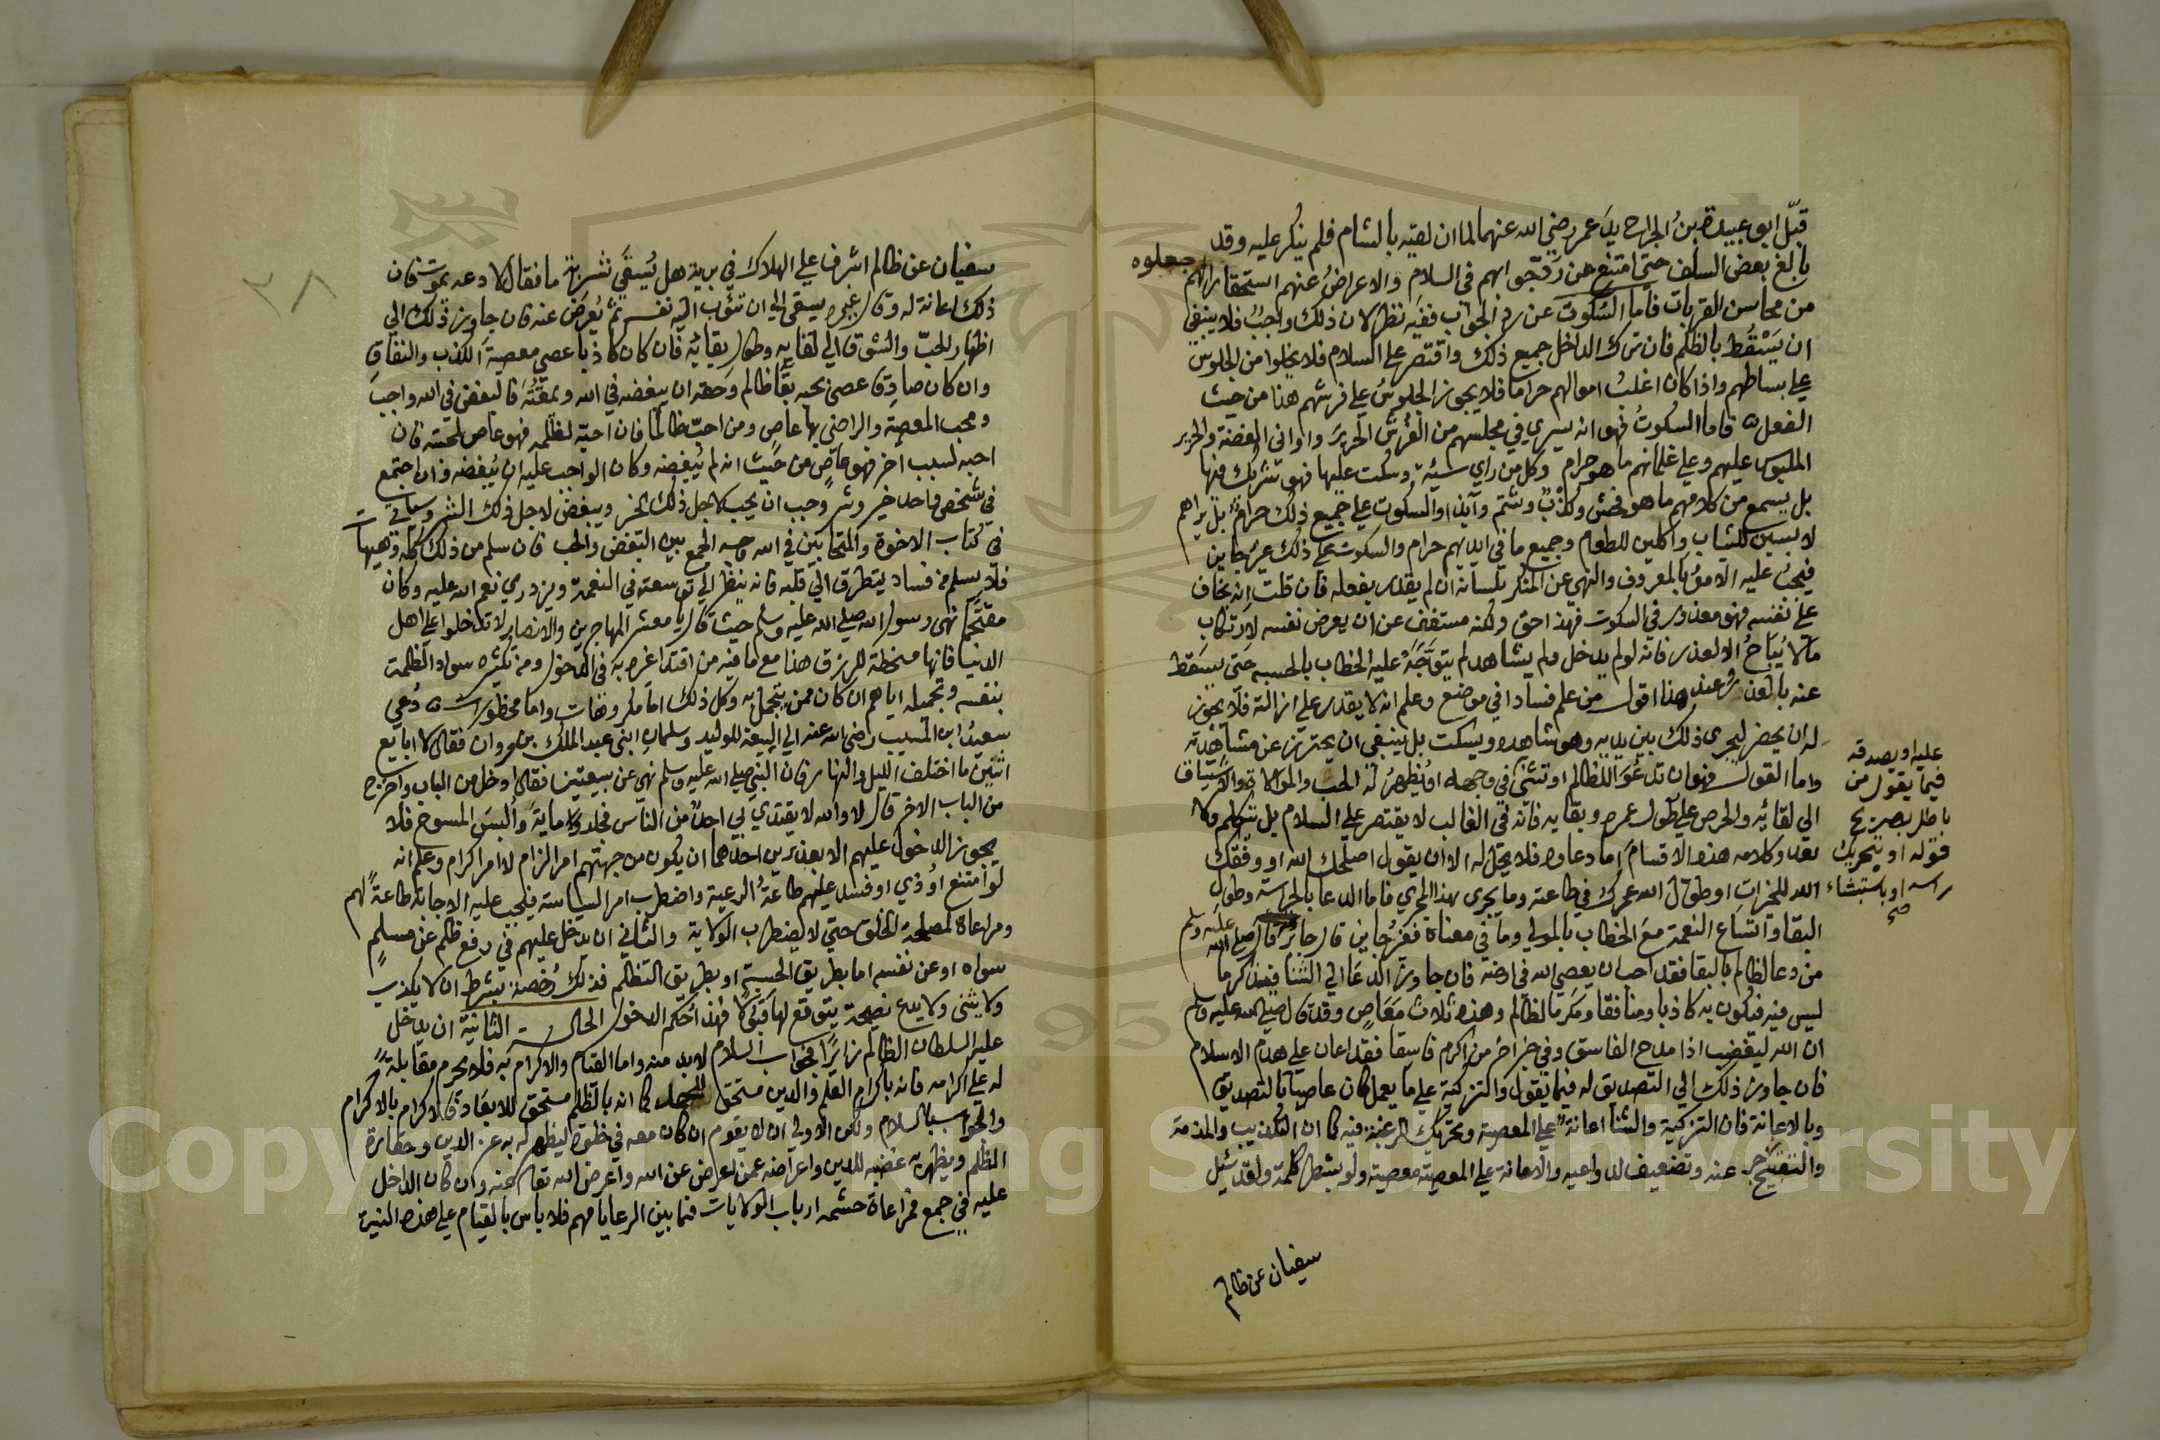 قبّل ابو عبيدة بنُ الجراح يدَ عمر رضي الله عنهما لما ان لقيه بالشام فلم ينكر عليه وقد
بالغ بعض السلف حتى امتنع من رد جوابهم في السلام والاعراضُ عنهم استحقارا لهم جعلوه
من محاسن القربات فأما السكوت عن رد الجواب ففيه نظر لان ذلك واجبٌ فلا ينبغي
ان يَسْقُط بالظلم فان ترك الداخل جميع ذلك واقتصر على السلام فلا يخلوا من الجلوس
على بساطهم واذا كان اغلبُ اموالهم حراما فلا يجوز الجلوسُ على فرشهم هذا من حيث
الفعل فاما السكوتُ فهو انه سيرى في مجلسهم من الفُرُش الحرير واواني الفضة والحرير
الملبوس عليهم وعلى غلمانهم ما هو حرام وكل من راى سيئة وسكت عليها فهو شريك فيها
بل يسمع من كلامهم ما هو فحش وكذبٌ وشتم وايذا والسكوت على جميع ذلك حرام بل يراهم
لابسين للثياب واكلين للطعام وجميع ما في ايديهم حرام والسكوت على ذلك غير جايز
فيجبُ عليه الامرُ بالمعروف والنهي عن المنكر بلسانه ان لم يقدر بفعله فان قلت انه يخاف
على نفسه فهو معذور في السكوت فهذا حق ولكنه مستغنٍ عن ان يعرض نفسه لارتكاب
ما لا يُبَاحُ الا لعذر فانه لو لم يدخل ولم يشاهد لم يتوجّه عليه الخطاب بالحسبه حتى يسقط
عنه بالعذر وعند هذا اقول من علم فسادا في موضع وعلم انه لا يقدر على ازالته فلا يجوز
له ان يحضر ليجري ذلك بين يديه وهو يشاهده ويسكت بل ينبغي ان يحترز عن مشاهدته
واما القول فهو ان تدعُوَ للظالم او تثني في وجهه او يُظهرُ له الحب والموالاة والاشتياق
الى لقائه والحرص على طول عمره وبقايه فانه في الغالب لا يقتصر على السلام بل يتكلم ولا
يعدو كلامه هذه الاقسام اما دعاوه فلا يحل له الا ان يقول اصلحك الله او وفقك
الله للخيرات او طوّل الله عمرك في طاعته وما يجرى بهذا المجرى فاما الدعا بالحراسة وطول
البقا واتساع النعمة مع الخطاب بالمولى وما في معناه فغير جايز قال صلى الله عليه وسلم
من دعا لظالم بالبقا فقد احب ان يعصى الله في ارضه فان جاوز الدعا الى الثنا فيذكر ما
ليس فيه فيكون به كاذبا ومنافقا ومكرما لظالم وهذه ثلاث مَعَاصٍ وقد قال صلى الله عليه وسلم
ان الله ليغضب اذا مدح الفاسق وفي خبر اخر من اكرم فاسقا فقد اعان على هدم الاسلام
فان جاوز ذلك الى التصديق له فيما يقول والتزكية على ما يعمل كان عاصيا بالتصديق
وبالاعانة فان التزكية والثنا اعانة على المعصية وتحريك للرغبة فيه كما ان التكذيب والمذمة
والتقبيح زجر عنه وتضعيف لدواعيه والاعانة على المعصية معصية ولو بشطر كلمة ولقد سُئل
سفيان عن ظالم
عليه او يصدقه
فيما يقول من
باطل بصريح
قوله او بتحريك
راسه او باستبشار
صح
٣٨
سفيان عن ظالم اشرف على الهلاك في برية هل يُسقَى شربة ما فقال لا دعه يموت فان
ذلك اعانة له وقال غيره يسقى الى ان تثوب اليه نفسه ثم يُعرض عنه فان جاوز ذلك الى
اظهار الحبّ والشوق الى لقايه وطول بقائه فان كان كاذبا عصى معصية الكذب والنفاق
وان كان صادقا عصى بحبه بقا ظالم وحقه ان يبغضه في الله ويمقتَه فالبغض في الله واجب
ومحب المعصية والراضي بها عاص ومن احبّ ظالما فان احبّه لظلمه فهو عاص لمحبته فان
احبه لسبب اخر فهو عاصٍ من حيث انه لم يُبغضه وكان الواجب عليه ان يُبغضه وان اجتمع
في شخص واحد خير وشر وجب ان يحب لاجل ذلك الخير ويبغض لاجل ذلك الشر وسياتي
في كتاب الاخوة والمتحابين في الله وجه الجمع بين البغض والحب فان سلم من ذلك كله وهيهات
فلا يسلم من فساد يتطرق الى قلبه فانه ينظر الى توسعته في النعمة ويزدري نعم الله عليه وكان
مقتحما نهى رسول الله صلى الله عليه وسلم حيث قال يا معشر المهاجرين والانصار لا تدخلوا على اهل
الدنيا فانها مسخطة للرزق هذا مع ما فيه من اقتداء غيره به في الدخول ومن تكثيره سواد الظلمة
بنفسه وتجميله اياهم ان كان ممن يتجمل به وكل ذلك اما مكروهات واما محظورات دُعي
سعيدُ ابن المسيب رضي الله عنه الى البيعة للوليد وسلمان ابنى عبد الملك بن مروان فقال لا ابايع
اثنين ما اختلف الليل والنهار فان النبي صلى الله عليه وسلم نهى عن بيعتين فقال ادخل من الباب واخرج
من الباب الاخر قال لا والله لا يقتدي بي احدٌ من الناس فجلد ماية وألبسَ المسوح فلا
يجوز الدخول عليهم الا بعذرين احدهما ان يكون من جهتهم امر الزام لا امر اكرام وعلم انه
لو امتنع اوُذي او فسد عليهم طاعةُ الرعية واضطرب امر السياسة فيجب عليه الاجابة لا طاعةً لهم
ومراعاة لمصلحة الخلق حتى لا يضطرب الولاية والثاني ان يدخل عليهم في دفع ظلم عن مسلم
سواه او عن نفسه اما بطريق الحسبة او بطريق التظلم فذلك رُخصة بشرط ان لا يكذب
ولا يثنى ولا يدع نصيحة يتوقع لها قبولا فهذا حكم الدخول الحالة الثانية ان يدخل
عليه السلطان الظالم زائرا فجواب السلام لابد منه واما القيام والاكرام به فلا يحرم مقابلةً
له على اكرامه فانه باكرام العلم والدين مستحق كما انه بالظلم مستحق للابعاد فالاكرام بالاكرام
والجواب بالسلام ولكن الاولى ان لا يقوم ان كان معه في خلوة ليظهر له به عز الدين وحقارة
الظلم ويظهر به غضبه للدين واعراضه عمن اعرض عن الله واعرض الله تعالى عنه وان كان الداخل
عليه في جمع فمراعاة حشمة ارباب الولايات فيما بين الرعايا مهم فلا باس بالقيام على هذه النية